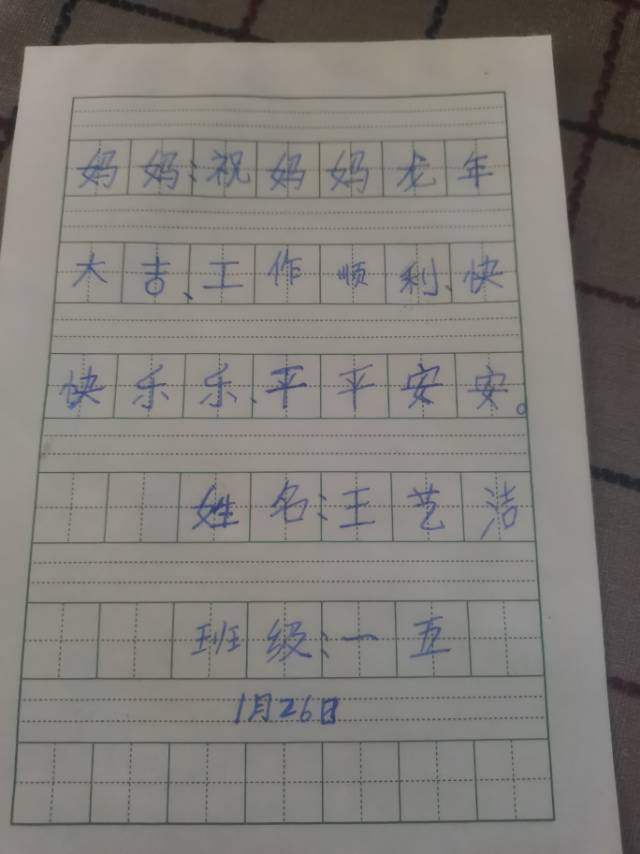 妈妈:祝妈妈龙年
大吉、工作顺利、快
快乐乐、平平安安。
姓名:王艺洁
班级:一五
1月26日